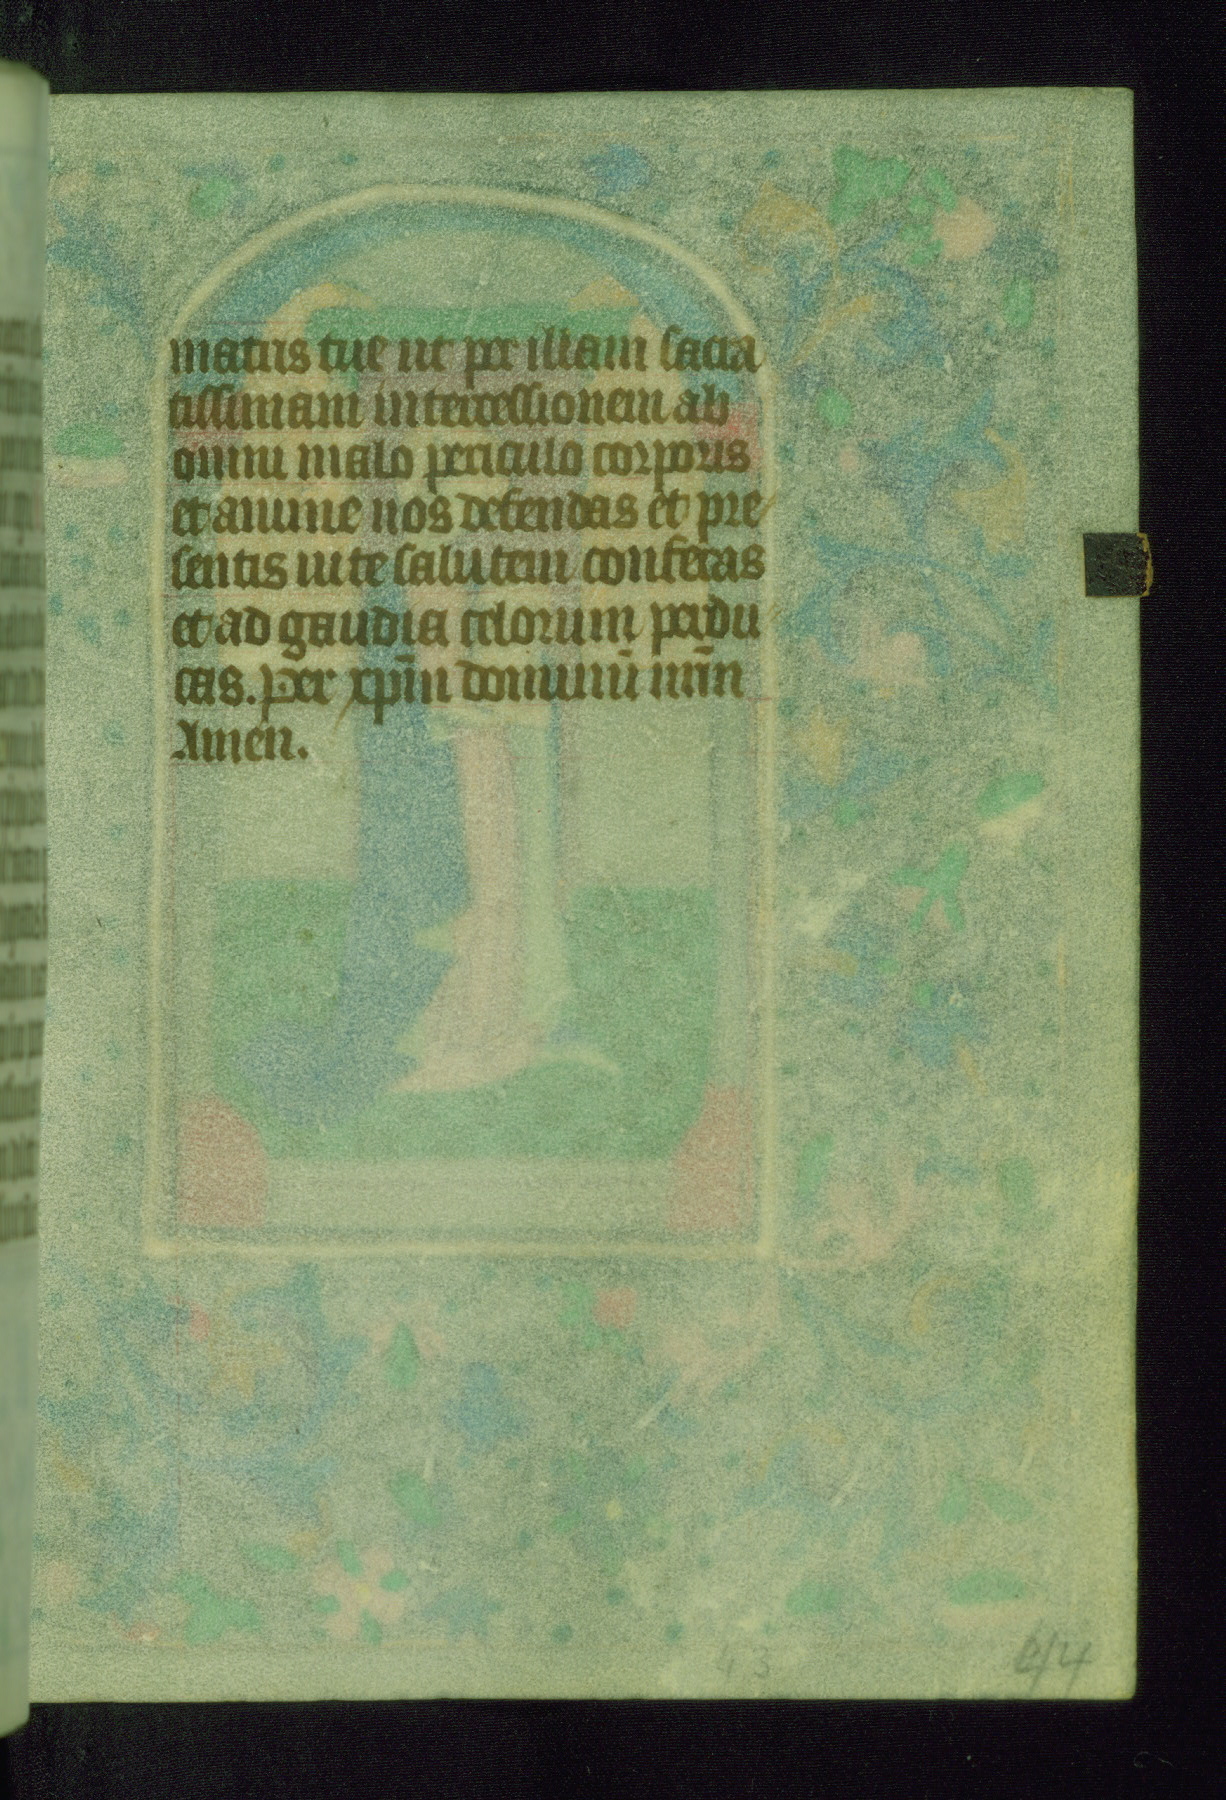 matris tue ut per illam sacra
tissimam intercessionem ab
omni malo periculo corporis
et anime nos defendas et pre
sentis uite salutem conferas
et ad gaudia celorum perdu
cas. Per xp̄m dominū nr̄m
Amen.
43
44